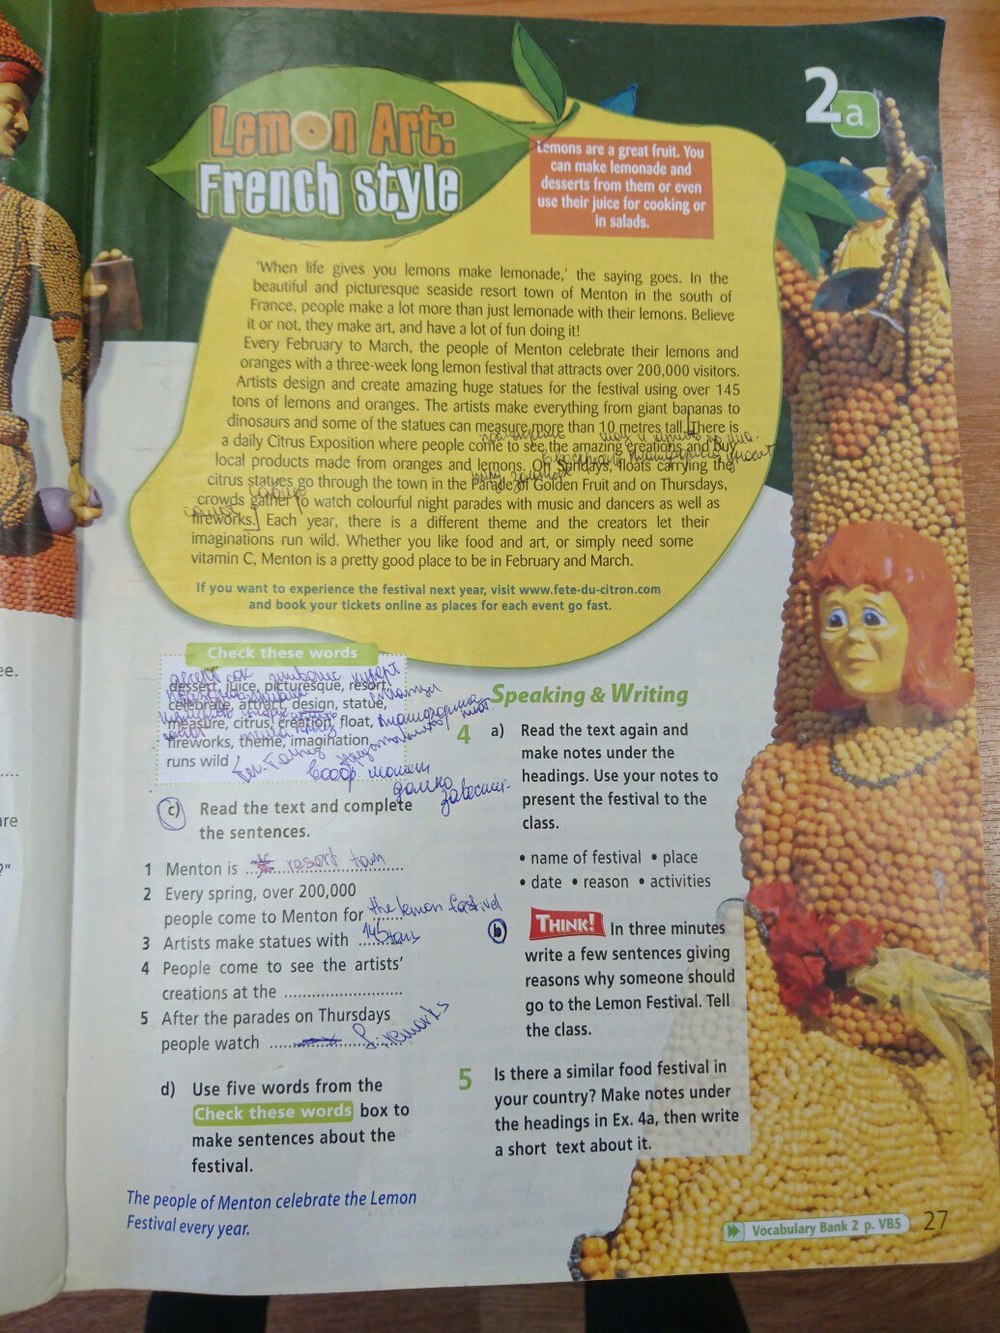 2a
Lemon Art:
French style
Lemons are a great fruit. You
can make lemonade and
desserts from them or even
use their juice for cooking or
in salads.
'When life gives you lemons make lemonade,' the saying goes. In the
beautiful and picturesque seaside resort town of Menton in the south of
France, people make a lot more than just lemonade with their lemons. Believe
it or not, they make art, and have a lot of fun doing it!
Every February to March, the people of Menton celebrate their lemons and
oranges with a three-week long lemon festival that attracts over 200,000 visitors.
Artists design and create amazing huge statues for the festival using over 145
tons of lemons and oranges. The artists make everything from giant bananas to
dinosaurs and some of the statues can measure more than 10 metres tall. There is
a daily Citrus Exposition where people come to see the amazing creations and buy
local products made from oranges and lemons. On Sundays, floats carrying the
citrus statues go through the town in the Parade of Golden Fruit and on Thursdays,
crowds gather to watch colourful night parades with music and dancers as well as
fireworks. Each year, there is a different theme and the creators let their
imaginations run wild. Whether you like food and art, or simply need some
vitamin C, Menton is a pretty good place to be in February and March.
If you want to experience the festival next year, visit www.fete-du-citron.com
and book your tickets online as places for each event go fast.
Check these words
десерт сок
dessert, juice, picturesque, resort,
celebrate, attract, design, statue,
measure, citrus, creation, float,
fireworks, theme, imagination,
runs wild
c) Read the text and complete
the sentences.
1 Menton is resort
2 Every spring, over 200,000
people come to Menton for the lemon festival
3 Artists make statues with 145 tons
4 People come to see the artists'
creations at the
5 After the parades on Thursdays
people watch fireworks
d) Use five words from the
Check these words box to
make sentences about the
festival.
The people of Menton celebrate the Lemon
Festival every year.
Speaking & Writing
4 a) Read the text again and
make notes under the
headings. Use your notes to
present the festival to the
class.
• name of festival • place
• date • reason • activities
b THINK! In three minutes
write a few sentences giving
reasons why someone should
go to the Lemon Festival. Tell
the class.
5 Is there a similar food festival in
your country? Make notes under
the headings in Ex. 4a, then write
a short text about it.
Vocabulary Bank 2 p. VB5
27